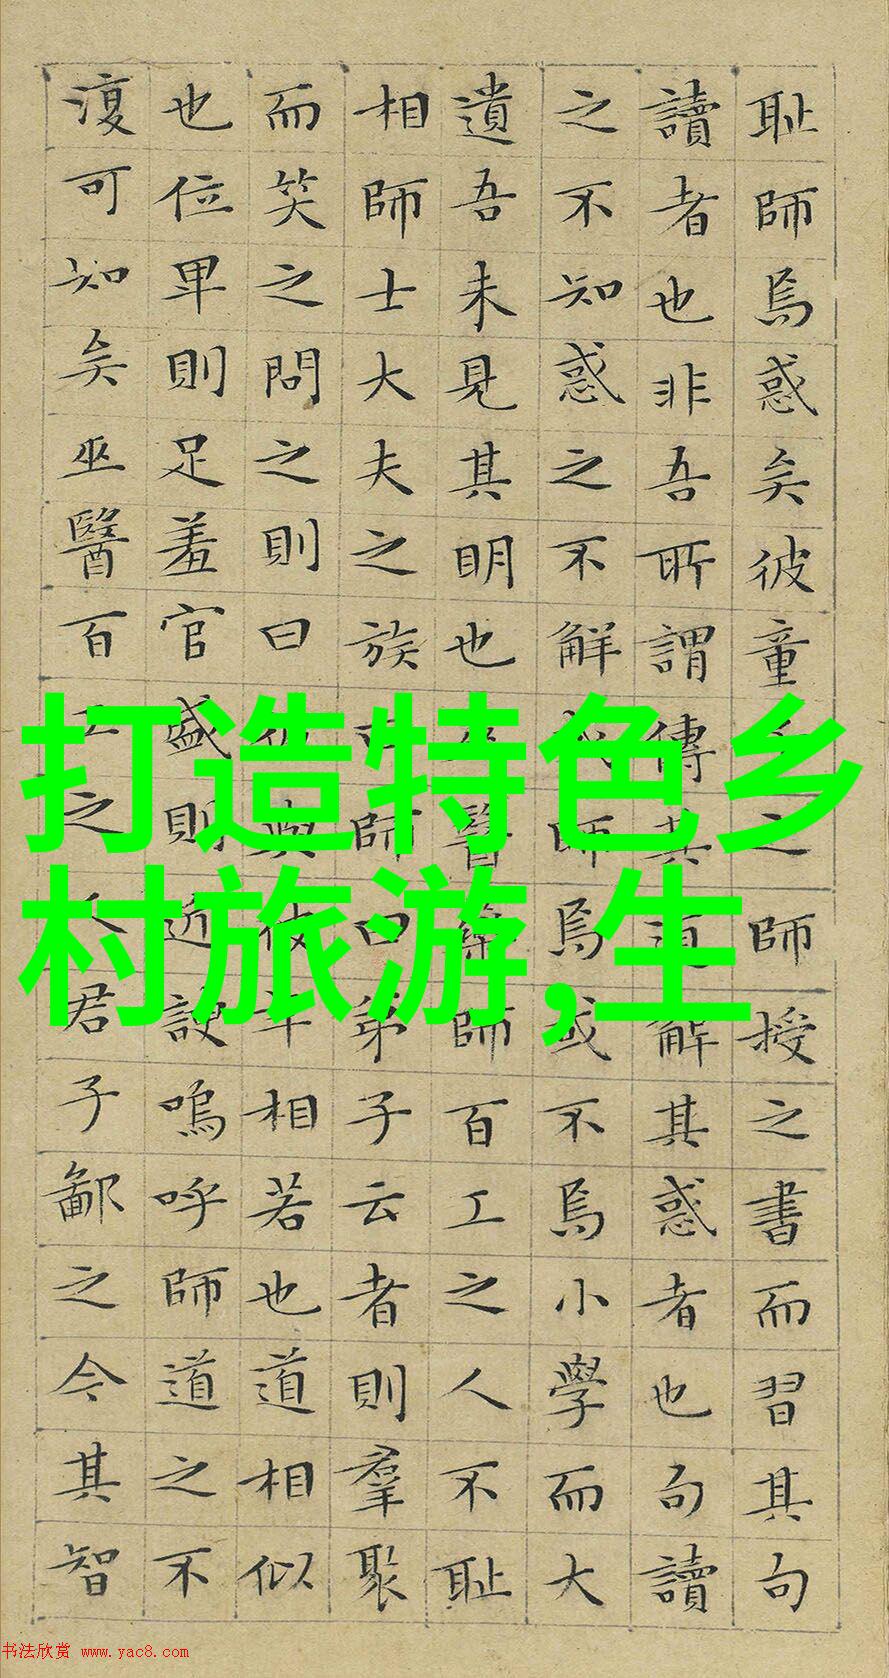 耻師焉惑矣彼童子之師授之書而習其句
讀者也非吾所謂傳其道解其惑者也句讀
之不知惑之不解或師焉或不焉小學而大
遺吾未見其明也巫醫樂師百工之人不耻
相師士大夫之族曰師曰弟子云者則羣聚
而笑之問之則曰彼與彼年相若也道相似
也位卑則足羞官盛則近諛嗚呼師道之不
復可知矣巫醫百工之人君子鄙之今其智
打造特色乡
村旅游,生
书法欣赏 www.yac8.com